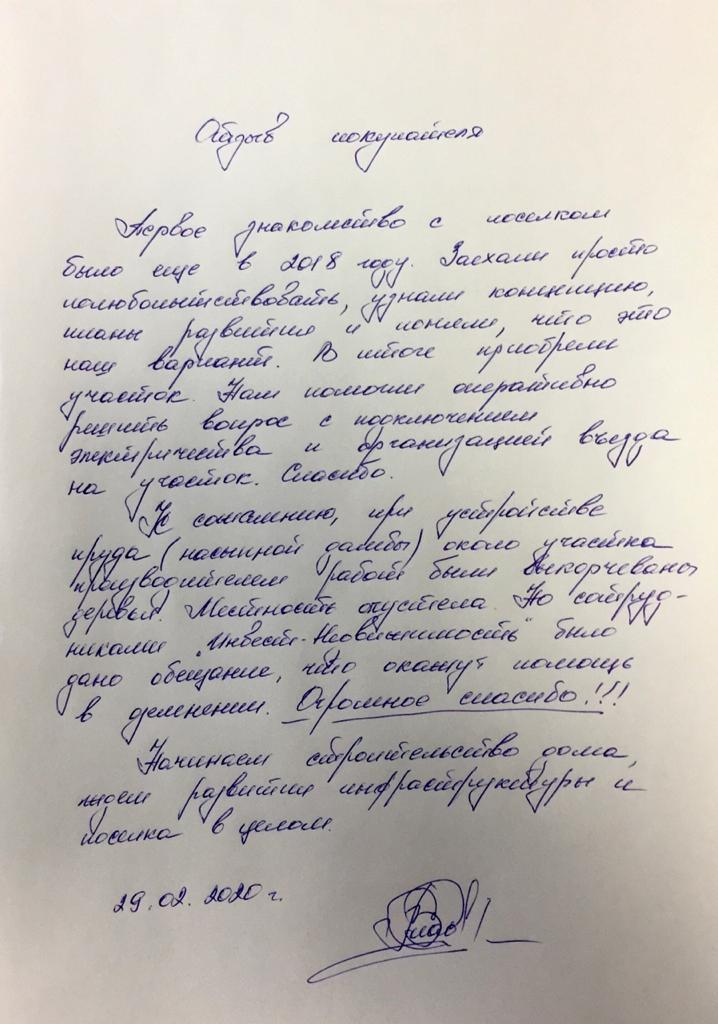 Отзыв покупателя
Первое знакомство с поселком
было еще в 2018 году. Заехали просто
полюбопытствовать, узнали концепцию,
планы развития и поняли, что это
наш вариант. В итоге приобрели
участок. Нам помогли оперативно
решить вопрос с подключением
электричества и организацией въезда
на участок. Спасибо.
К сожалению, при устройстве
пруда (насыпной дамбы) около участка
производителем работ были выкорчеваны
деревья. Местность опустела. Но сотруд-
никами "Инвест-Недвижимость" было
дано обещание, что окажут помощь
в
Огромное спасибо!!!
Начинаем строительство дома,
ждем развития инфраструктуры и
поселка в целом.
29.02.2020 г.